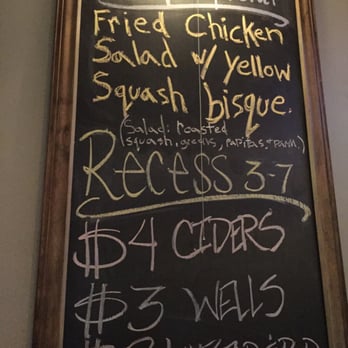 Fried Chicken
Salad w/ Yellow
Squash bisque.
(Salad: roasted
squash, greens, papitas, & parm.)
Recess 3-7
$4 CIDERS
$3 WELLS